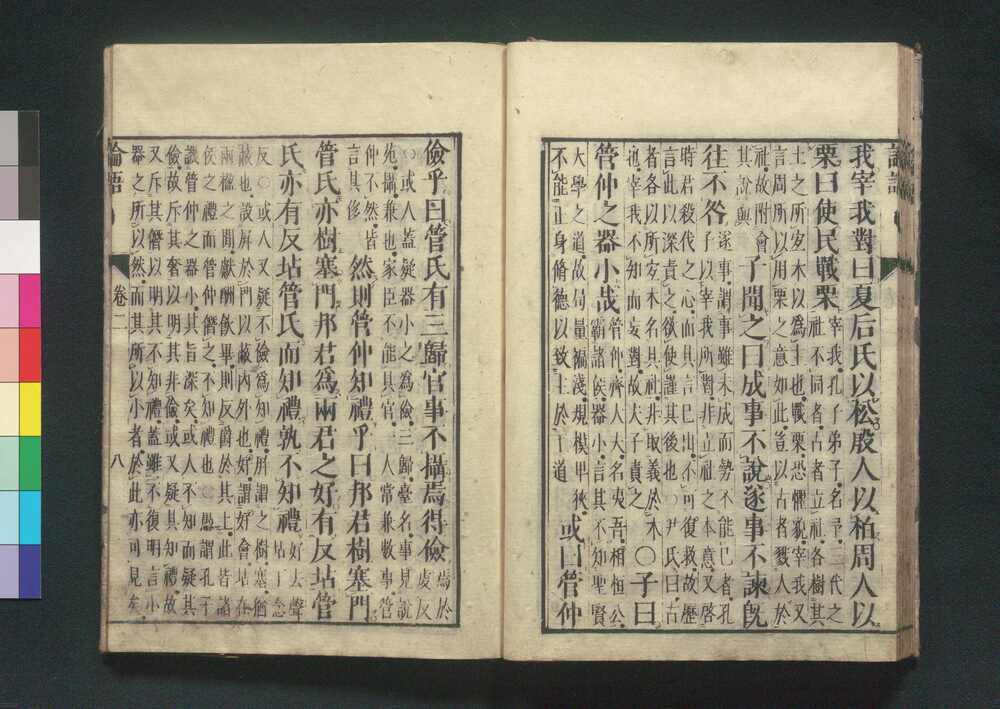 論語
我宰我對曰夏后氏以松殷人以柏周人以
栗曰使民戰栗
宰我孔子弟子名予三代之
社不同者古者立社各樹其
土之所宜木以爲主也戰栗恐懼貌宰我又
言周所以用栗之意如此豈以古者戮人於
社故附會
其說與
子聞之曰成事不說遂事不諫旣
往不咎
遂事謂事雖未成而勢不能已者孔
子以宰我所對非立社之本意又啓
時君殺伐之心而其言已出不可復救故歷
言此以深責之欲使謹其後也○尹氏曰古
者各以所宜木名其社非取義於木
也宰我不知而妄對故夫子責之
○子曰
管仲之器小哉
管仲齊大夫名夷吾相桓公
霸諸侯器小言其不知聖賢
大學之道故局量褊淺規模卑狹
不能正身脩德以致主於王道
或曰管仲
儉乎曰管氏有三歸官事不攝焉得儉
焉於
虔反
○或人蓋疑器小之爲儉三歸臺名事見說
苑攝兼也家臣不能具官一人常兼數事管
仲不然皆
言其侈
然則管仲知禮乎曰邦君樹塞門
管氏亦樹塞門邦君爲兩君之好有反坫管
氏亦有反坫管氏而知禮孰不知禮
好去聲
坫丁念
反○或人又疑不儉爲知禮屏謂之樹塞猶
蔽也設屏於門以蔽內外也好謂好會坫在
兩楹之間獻酬飮畢則反爵於其上此皆諸
侯之禮而管仲僭之不知禮也○愚謂孔子
譏管仲之器小其旨深矣或人不知而疑其
儉故斥其奢以明其非儉或又疑其知禮故
又斥其僭以明其不知禮蓋雖不復明言小
器之所以然而其所以小者於此亦可見矣
論語 卷二 八